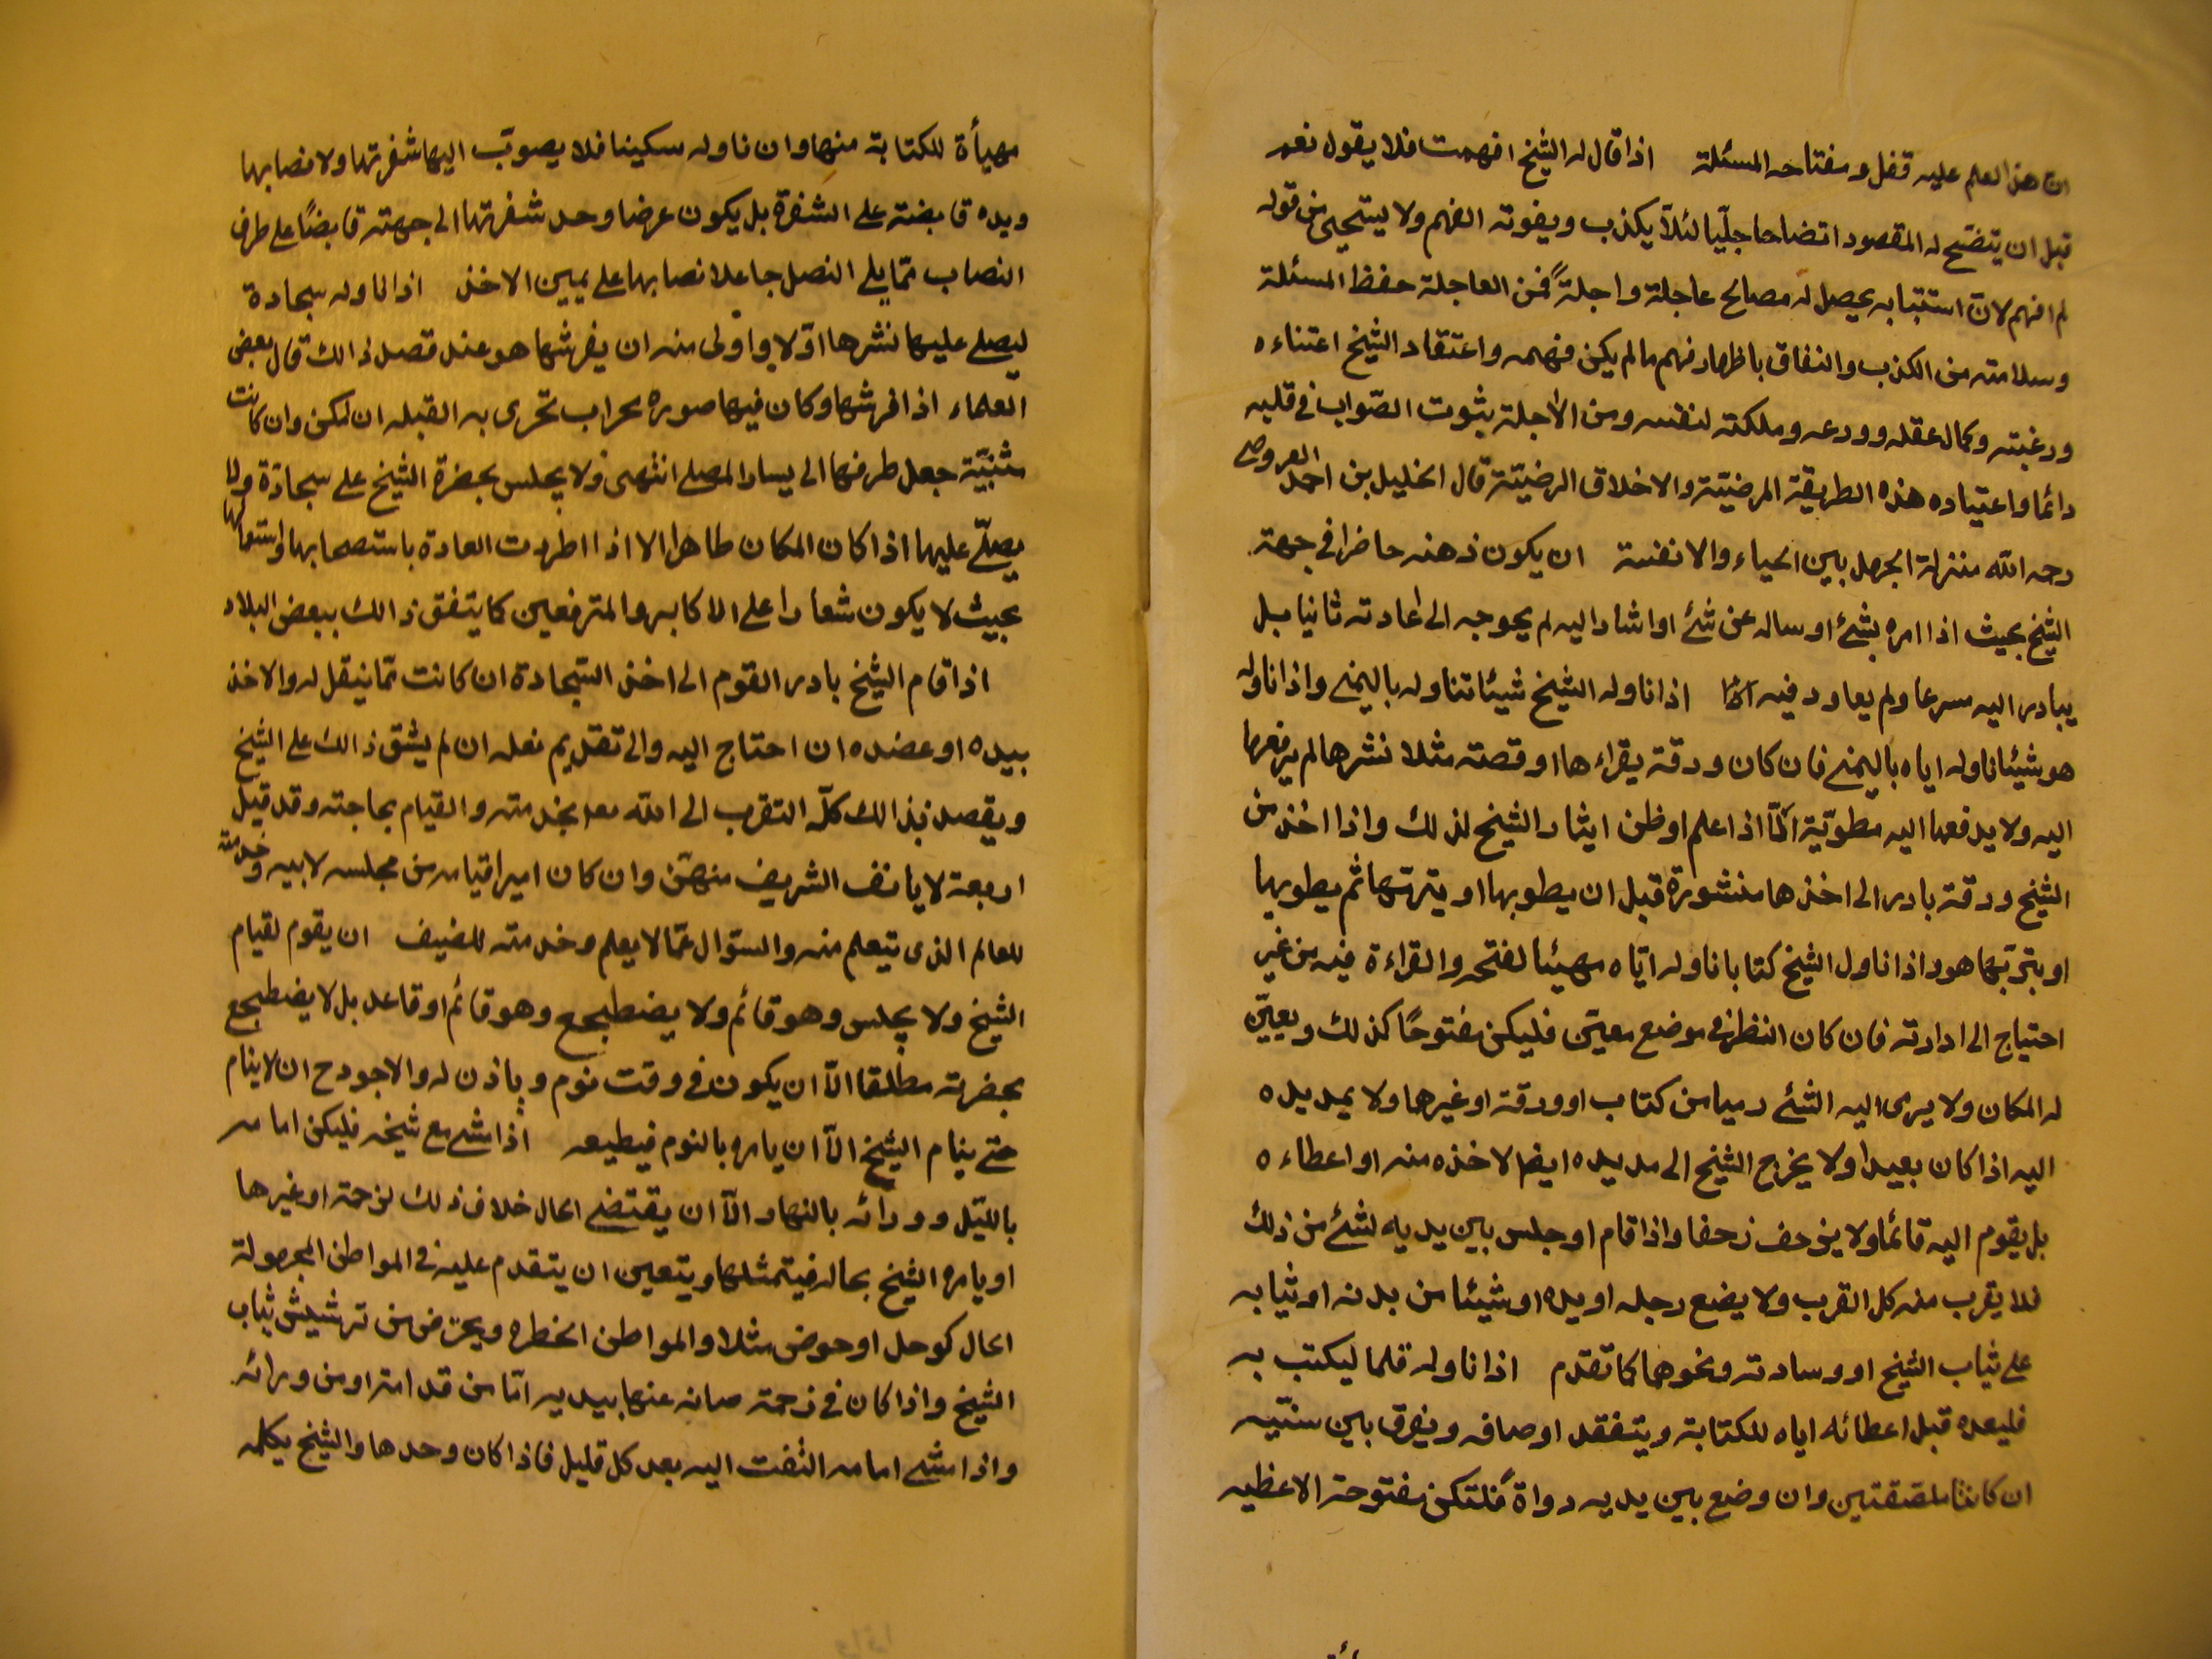 ان هذا العلم عليه قفل ومفتاحه المسئلة اذا قال له الشيخ افهمت فلا يقول نعم
قبل ان يتضح له المقصود اتضاحا جليّا لئلّا يكذب ويفوته الفهم ولا يستحيى من قوله
لم افهم لانّ استثباته يحصل له مصالح عاجلة واجلة فمن العاجلة حفظ المسئلة
وسلامته من الكذب والنفاق باظهار فهم ما لم يكن فهمه واعتقاد الشيخ اعتناءه
ورغبته وكمال عقله وورعه وملكته لنفسه ومن الاجلة ثبوت الصّواب في قلبه
دائما واعتياده هذه الطريقة المرضيّة والاخلاق الرضيّة قال الخليل بن احمد العروضى
رحمه الله منزلة الجهل بين الحياء والانفسة ان يكون ذهنه حاضرا في جهة
الشيخ بحيث اذا امره بشئ او ساله عن شئ او اشار اليه لم يحوجه الى اعادته ثانيا بل
يبادر اليه مسرعا ولم يعاود فيه اذا ناوله الشيخ شيئا تناوله باليمنى واذا ناوله
هو شيئا ناوله اياه باليمنى فان كان ورقة يقراءها او قصة مثلا نشرها لم يرفعها
اليه ولا يدفعها اليه مطويّة الّا اذا علم او ظن ايثار الشيخ لذلك واذا اخذ من
الشيخ ورقة بادر الى اخذها منشورة قبل ان يطويها او يتربها ثم يطويها
او يتربّها هو واذا ناول الشيخ كتابا ناوله ايّاه مهيئا لفتحه والقراءة فيه من غير
احتياج الى ادارته فان كان النظر في موضع معيّن فليكن مفتوحًا كذلك ويعيّن
له المكان ولا يرمى اليه الشئ رميا من كتاب او ورقة او غيرها ولا يمد يده
اليه اذا كان بعيدا ولا يخرج الشيخ الى مد يده ايضا لاخذه منه او اعطاءه
بل يقوم اليه قائما ولا يزحف زحفا واذا قام او جلس بين يديه لشئ من ذلك
فلا يقرب منه كل القرب ولا يضع رجله او يده او شيئا من بدنه او ثيابه
على ثياب الشيخ او وسادته ونحوهما كما تقدم اذا ناوله قلما ليكتب به
فليعده قبل اعطائه اياه للكتابة ويتفقد اوصافه ويفرق بين سنّيه
ان كانتا ملتصقتين وان وضع بين يديه دواة فلتكن مفتوحة الاغطيه
مهيأة للكتابة منها وان ناوله سكينا فلا يصوّب اليها شفرتها ولا نصابها
ويده قابضة على الشفرة بل يكون عرضا وحد شفرتها الى جهته قابضًا على طرف
النصاب ممّا يلى النصل جاعلا نصابها على يمين الاخذ اذا ناوله سجادة
ليصلى عليها نشرها اوّلا واولى منه ان يفرشها هو عند قصد ذالك قال بعض
العلماء اذا فرشها وكان فيها صوره محراب تحرى به القبله ان امكن وان كانت
مثنيّة جعل طرفها الى يسار المصلى انتهى ولا يجلس بحضرة الشيخ على سجادة ولا
يصلّى عليها اذا كان المكان طاهرا الا اذا اطردت العادة باستصحابها واستعمالها
بحيث لا يكون شعارا على الاكابر والمترفعين كما يتفق ذالك ببعض البلاد
اذا قام الشيخ بادر القوم الى اخذ السّجادة ان كانت ممّا ينقل له والاخذ
بيده او عضده ان احتاج اليه والى تقديم نعله ان لم يشق ذالك على الشيخ
ويقصد بذالك كلّه التقرب الى الله بخدمته والقيام بحاجته وقد قيل
اربعة لا يانف الشريف منهنّ وان كان اميرا قيامه من مجلسه لابيه وخدمته
للعالم الذى يتعلم منه والسّؤال عمّا لا يعلم وخدمته للضيف ان يقوم لقيام
الشيخ ولا يجلس وهو قائم ولا يضطجع وهو قائم او قاعد بل لا يضطجع
بحضرته مطلقا الّا ان يكون في وقت نوم وياذن له والاجود ح ان لا ينام
حتى ينام الشيخ الّا ان يامره بالنوم فيطيعه اذا مشى مع شيخه فليكن امامه
بالليّل وورائه بالنهار الّا ان يقتضى الحال خلاف ذلك لزحمة او غيرها
او يامره الشيخ بحاله فيتمثلها ويتعين ان يتقدم عليه في المواطن المجهولة
الحال كوحل او حوض مثلا والمواطن الخطره ويحترض من ترشيش ثياب
الشيخ واذا كان في زحمة صانه عنها بيديه امّا من قدامه او من ورائه
واذا مشى امامه التفت اليه بعد كل قليل فاذا كان وحدها والشيخ يكلمه